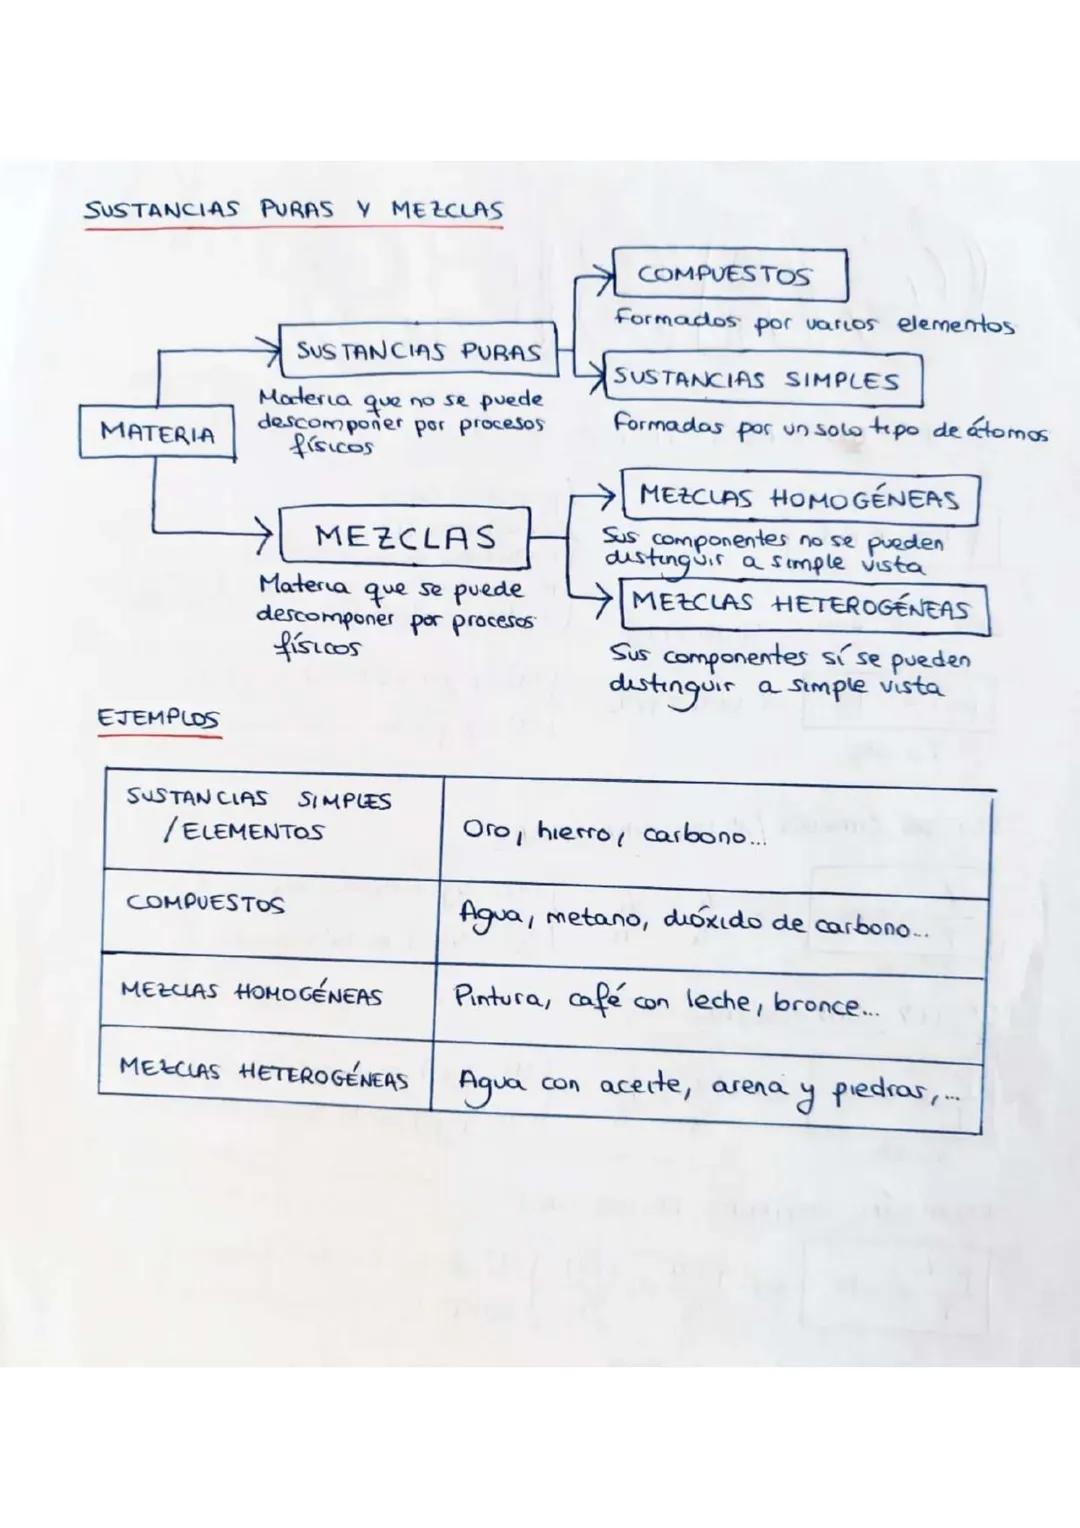 SUSTANCIAS PURAS Y MEZCLAS
COMPUESTOS
Formados por varios elementos
SUSTANCIAS PURAS
SUSTANCIAS SIMPLES
Materia que no se puede
descomponer por procesos
físicos
Formadas por un solo tipo de átomos
MATERIA
MEZCLAS HOMOGÉNEAS
Sus componentes no se pueden
distinguir a simple vista
MEZCLAS
Materia que se puede
descomponer por procesos
físicos
MEZCLAS HETEROGÉNEAS
Sus componentes sí se pueden
distinguir a simple vista
EJEMPLOS
SUSTANCIAS SIMPLES
/ELEMENTOS
Oro, hierro, carbono...
COMPUESTOS
Agua, metano, dióxido de carbono...
MEZCLAS HOMOGÉNEAS
Pintura, café con leche, bronce...
MEZCLAS HETEROGÉNEAS
Agua con aceite, arena y piedras,...